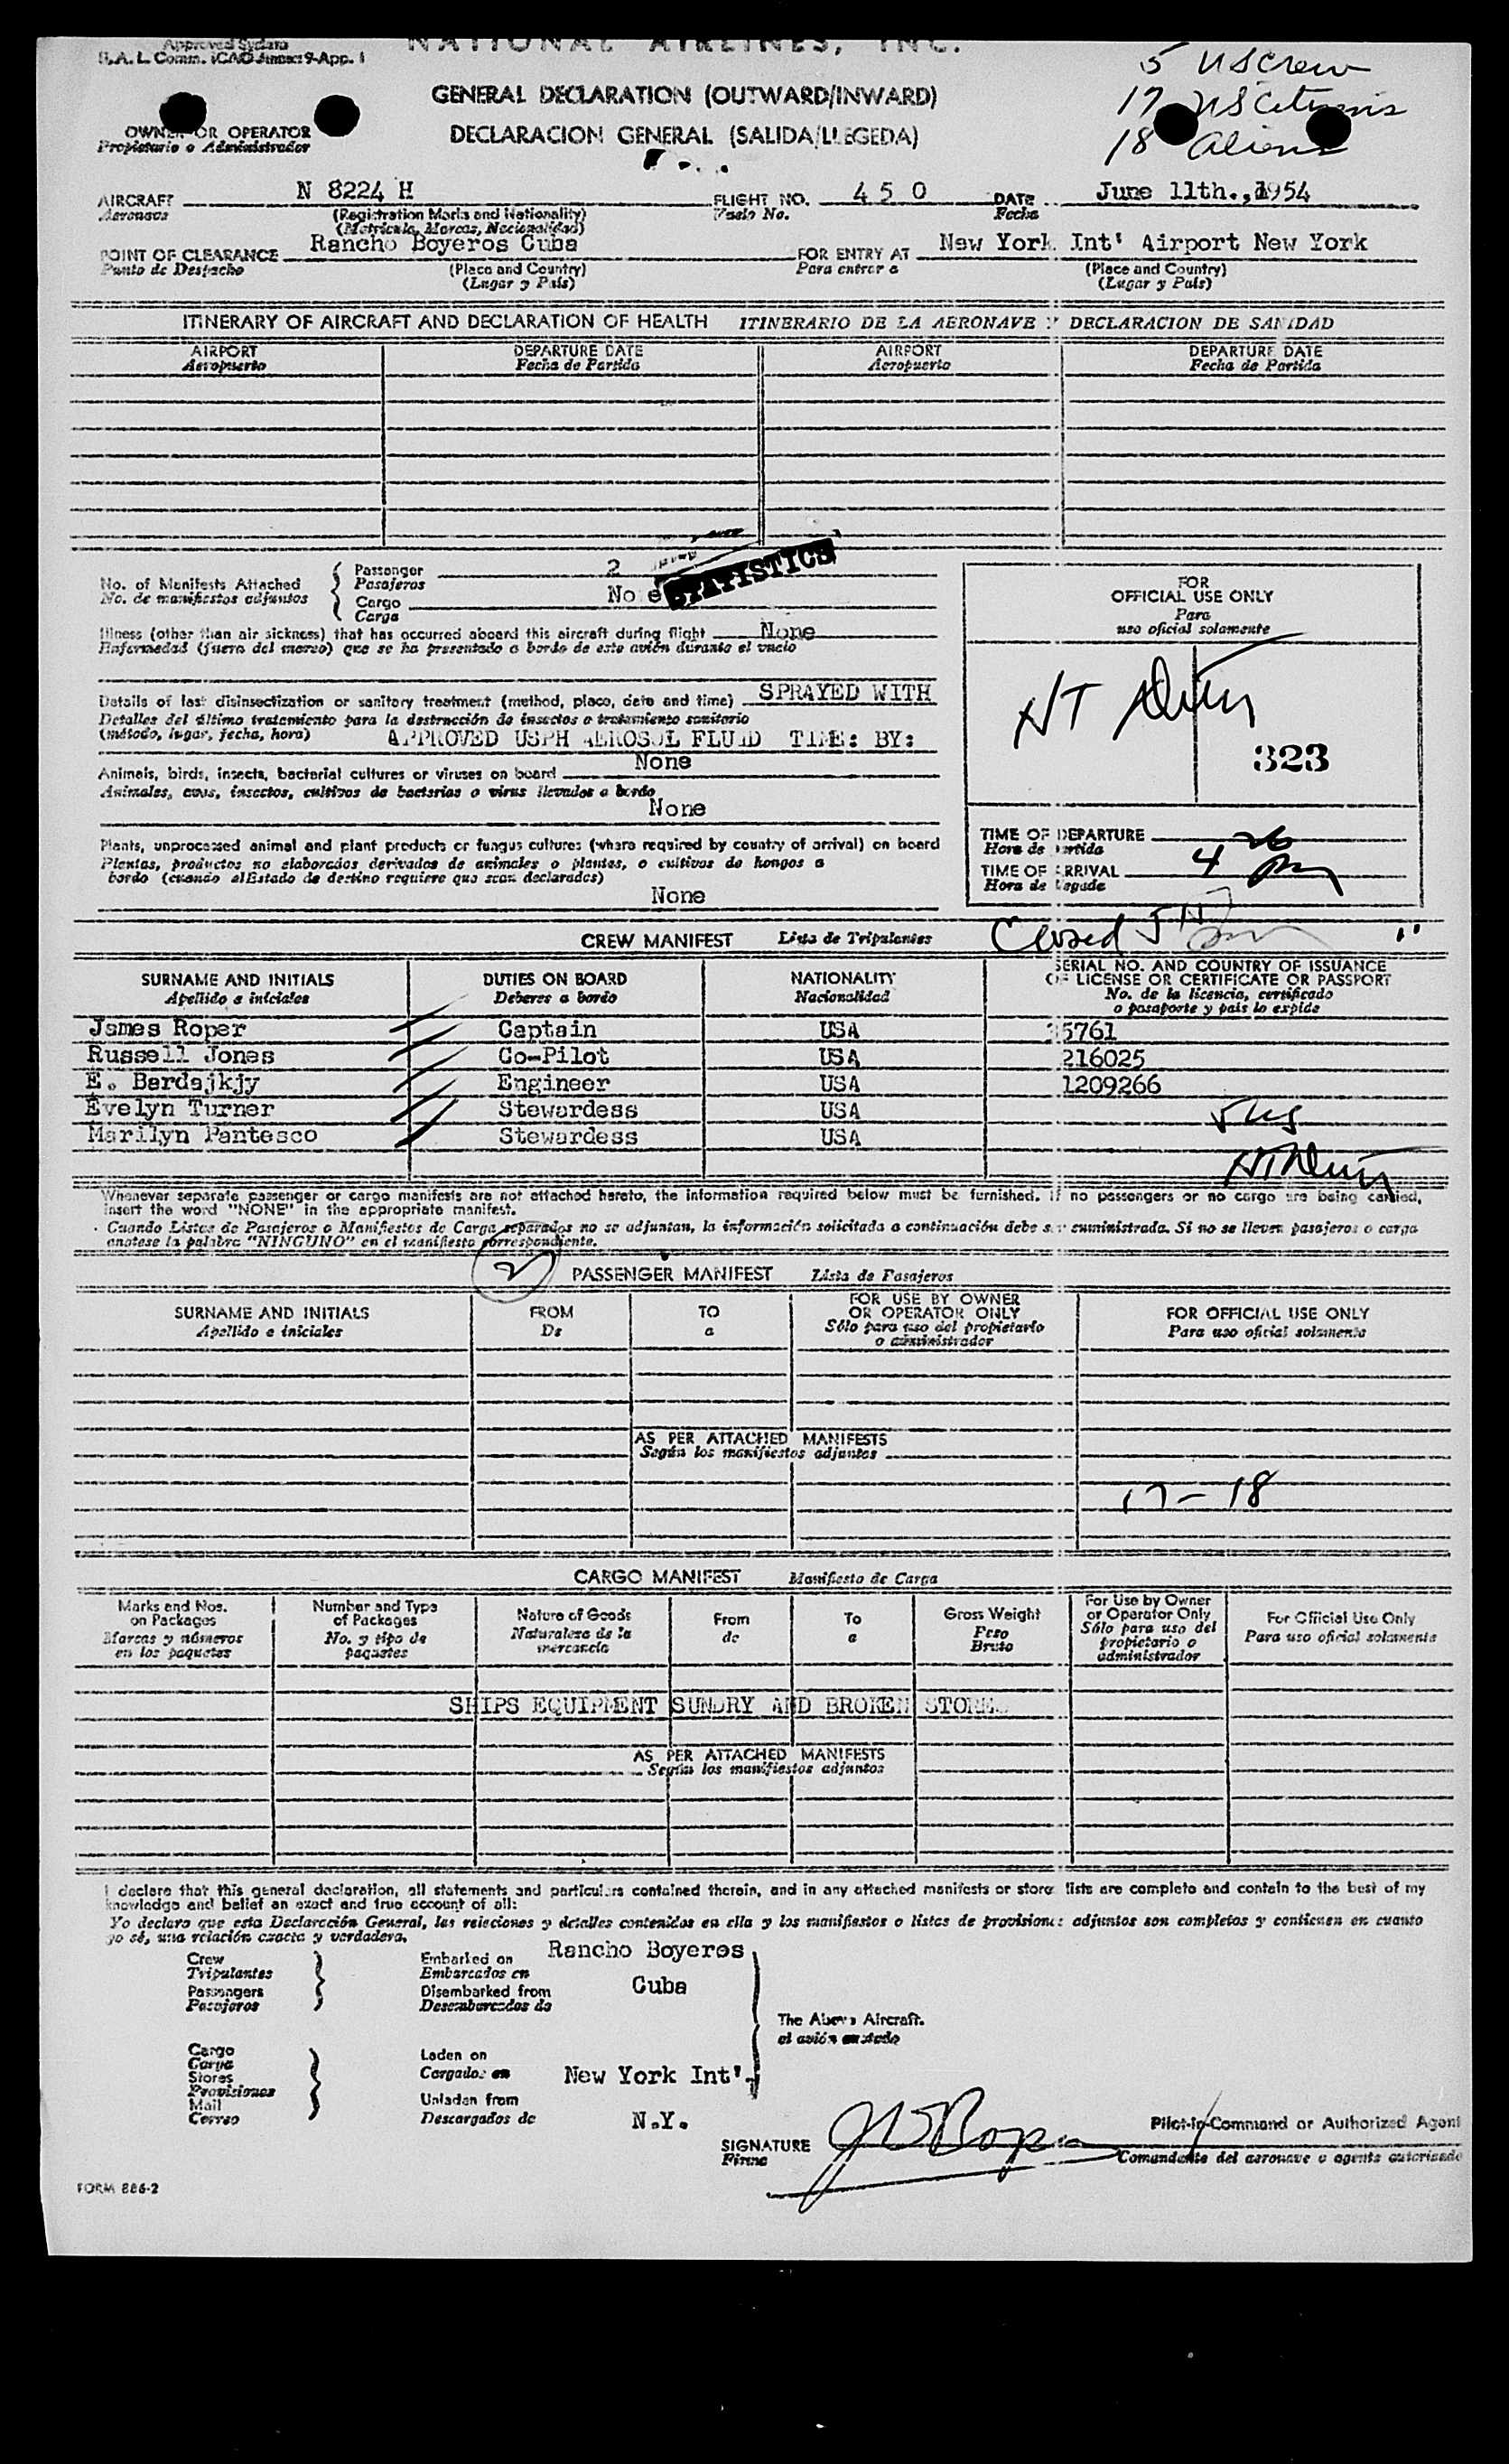 Approved System
NATIONAL AIRLINES, INC.
B.A.L. Comm. ICAO Annex 9-App. 1
5 US crew
17 US Citizens
18 aliens
GENERAL DECLARATION (OUTWARD/INWARD)
DECLARACION GENERAL (SALIDA/LLEGEDA)
OWNER OR OPERATOR
Propietario o Administrador
AIRCRAFT N 8224 H FLIGHT NO. 4 5 0 DATE June 11th., 1954
Aeronave (Registration Marks and Nationality) Vuelo No. Fecha
(Matricula, Marcas, Nacionalidad)
POINT OF CLEARANCE Rancho Boyeros Cuba FOR ENTRY AT New York Int' Airport New York
Punto de Despacho (Place and Country) Para entrar a (Place and Country)
(Lugar y País) (Lugar y País)
ITINERARY OF AIRCRAFT AND DECLARATION OF HEALTH ITINERARIO DE LA AERONAVE Y DECLARACION DE SANIDAD
AIRPORT DEPARTURE DATE AIRPORT DEPARTURE DATE
Aeropuerto Fecha de Partida Aeropuerto Fecha de Partida
STATISTICS
No. of Manifests Attached Passenger 2
No. de manifiestos adjuntos Pasajeros
Cargo None
Carga
Illness (other than air sickness) that has occurred aboard this aircraft during flight None
Enfermedad (fuera del mareo) que se ha presentado a bordo de este avión durante el vuelo
Details of last disinsectization or sanitary treatment (method, place, date and time) SPRAYED WITH
Detalles del último tratamiento para la destrucción de insectos o tratamiento sanitario
(método, lugar, fecha, hora) APPROVED USPH AEROSOL FLUID TIME: BY:
Animals, birds, insects, bacterial cultures or viruses on board None
Animales, aves, insectos, cultivos de bacterias o virus llevados a bordo
None
Plants, unprocessed animal and plant products or fungus cultures (where required by country of arrival) on board
Plantas, productos no elaborados derivados de animales o plantas, o cultivos de hongos a
bordo (cuando el Estado de destino requiere que sean declarados)
None
FOR
OFFICIAL USE ONLY
Para
uso oficial solamente
323
TIME OF DEPARTURE
Hora de partida
TIME OF ARRIVAL 4 26 pm
Hora de llegada
Closed
CREW MANIFEST Lista de Tripulantes
SURNAME AND INITIALS DUTIES ON BOARD NATIONALITY SERIAL NO. AND COUNTRY OF ISSUANCE
OF LICENSE OR CERTIFICATE OR PASSPORT
Apellido e iniciales Deberes a bordo Nacionalidad No. de la licencia, certificado
o pasaporte y país lo expide
James Roper Captain USA 5761
Russell Jones Co-Pilot USA 216025
E. Bardajkjy Engineer USA 1209266
Evelyn Turner Stewardess USA
5 US
Marilyn Pantesco Stewardess USA
Whenever separate passenger or cargo manifests are not attached hereto, the information required below must be furnished. If no passengers or no cargo are being carried,
insert the word "NONE" in the appropriate manifest.
Cuando Listas de Pasajeros o Manifiestos de Carga separados no se adjuntan, la información solicitada a continuación debe ser suministrada. Si no se lleven pasajeros o carga
anotese la palabra "NINGUNO" en el manifiesto correspondiente.
2
PASSENGER MANIFEST Lista de Pasajeros
SURNAME AND INITIALS FROM TO FOR USE BY OWNER
OR OPERATOR ONLY FOR OFFICIAL USE ONLY
Apellido e iniciales De a Sólo para uso del propietario
o administrador Para uso oficial solamente
AS PER ATTACHED MANIFESTS
Según los manifiestos adjuntos
17 - 18
CARGO MANIFEST Manifiesto de Carga
Marks and Nos.
on Packages
Marcas y números
en los paquetes
Number and Type
of Packages
No. y tipo de
paquetes
Nature of Goods
Naturaleza de la
mercancía
From
de
To
a
Gross Weight
Peso
Bruto
For Use by Owner
or Operator Only
Sólo para uso del
propietario o
administrador
For Official Use Only
Para uso oficial solamente
SHIPS EQUIPMENT SUNDRY AND BROKEN STORES
AS PER ATTACHED MANIFESTS
Según los manifiestos adjuntos
I declare that this general declaration, all statements and particulars contained therein, and in any attached manifests or store lists are complete and contain to the best of my
knowledge and belief an exact and true account of all:
Yo declaro que esta Declaración General, las relaciones y detalles contenidos en ella y los manifiestos o listas de provisiones adjuntos son completos y contienen en cuanto
yo sé, una relación exacta y verdadera.
Crew
Tripulantes
Passengers
Pasajeros
Embarked on Rancho Boyeros
Embarcados en
Disembarked from Cuba
Desembarcados de
The Above Aircraft.
el avión anotado
Cargo
Carga
Stores
Provisiones
Mail
Correo
Laden on
Cargados en New York Int'.
Unladen from
Descargados de N.Y.
SIGNATURE
Firma
Pilot-in-Command or Authorized Agent
Comandante del aeronave o agente autorizado
FORM 886-2